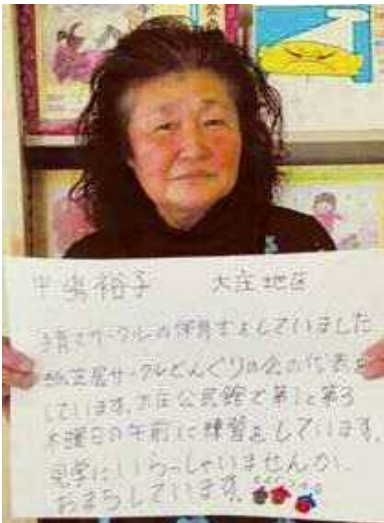 中嶋裕子 大庄地区
子育てサークルの保育士をしていました
紙芝居サークルどんぐりの会の代表を
しています。大庄公民館で第1と第3
木曜日の午前に練習をしています。
見学にいらっしゃいませんか、
おまちしています。